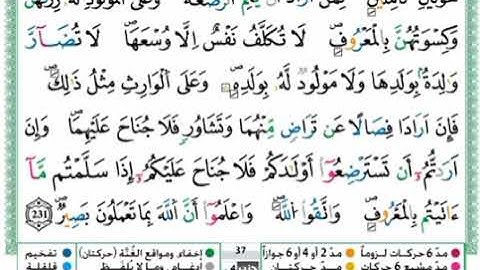 حَوْلَيْنِ كَامِلَيْنِ لِمَنْ أَرَادَ أَنْ يُتِمَّ الرَّضَاعَةَ وَعَلَى الْمَوْلُودِ لَهُ رِزْقُهُنَّ
وَكِسْوَتُهُنَّ بِالْمَعْرُوفِ لَا تُكَلَّفُ نَفْسٌ اِلَّا وُسْعَهَا لَا تُضَآرَّ
وَٰلِدَةٌ بِوَلَدِهَا وَلَا مَوْلُودٌ لَّهُ بِوَلَدِهِ وَعَلَى الْوَارِثِ مِثْلُ ذَٰلِكَ
فَإِنَ اَرَادَا فِصَالًا عَن تَرَاضٍ مِّنْهُمَا وَتَشَاوُرٍ فَلَا جُنَاحَ عَلَيْهِمَا وَإِنَ
اَرَدتُّمُ أَن تَسْتَرْضِعُوا أَوْلَٰدَكُمْ فَلَا جُنَاحَ عَلَيْكُمُ إِذَا سَلَّمْتُم مَّا
ءَاتَيْتُم بِالْمَعْرُوفِ وَاتَّقُوا اللَّهَ وَاعْلَمُوا أَنَّ اللَّهَ بِمَا تَعْمَلُونَ بَصِيرٌ 231
مدّ 6 حركات لزوماً مدّ 2 أو 4 أو 6 جوازاً 37 إخفاء، ومواقع الغُنَّة (حركتان) تفخيم
مدّ مشبع 6 حركات مدّ حركتان إدغام، وما لا يُلفظ قلقلة